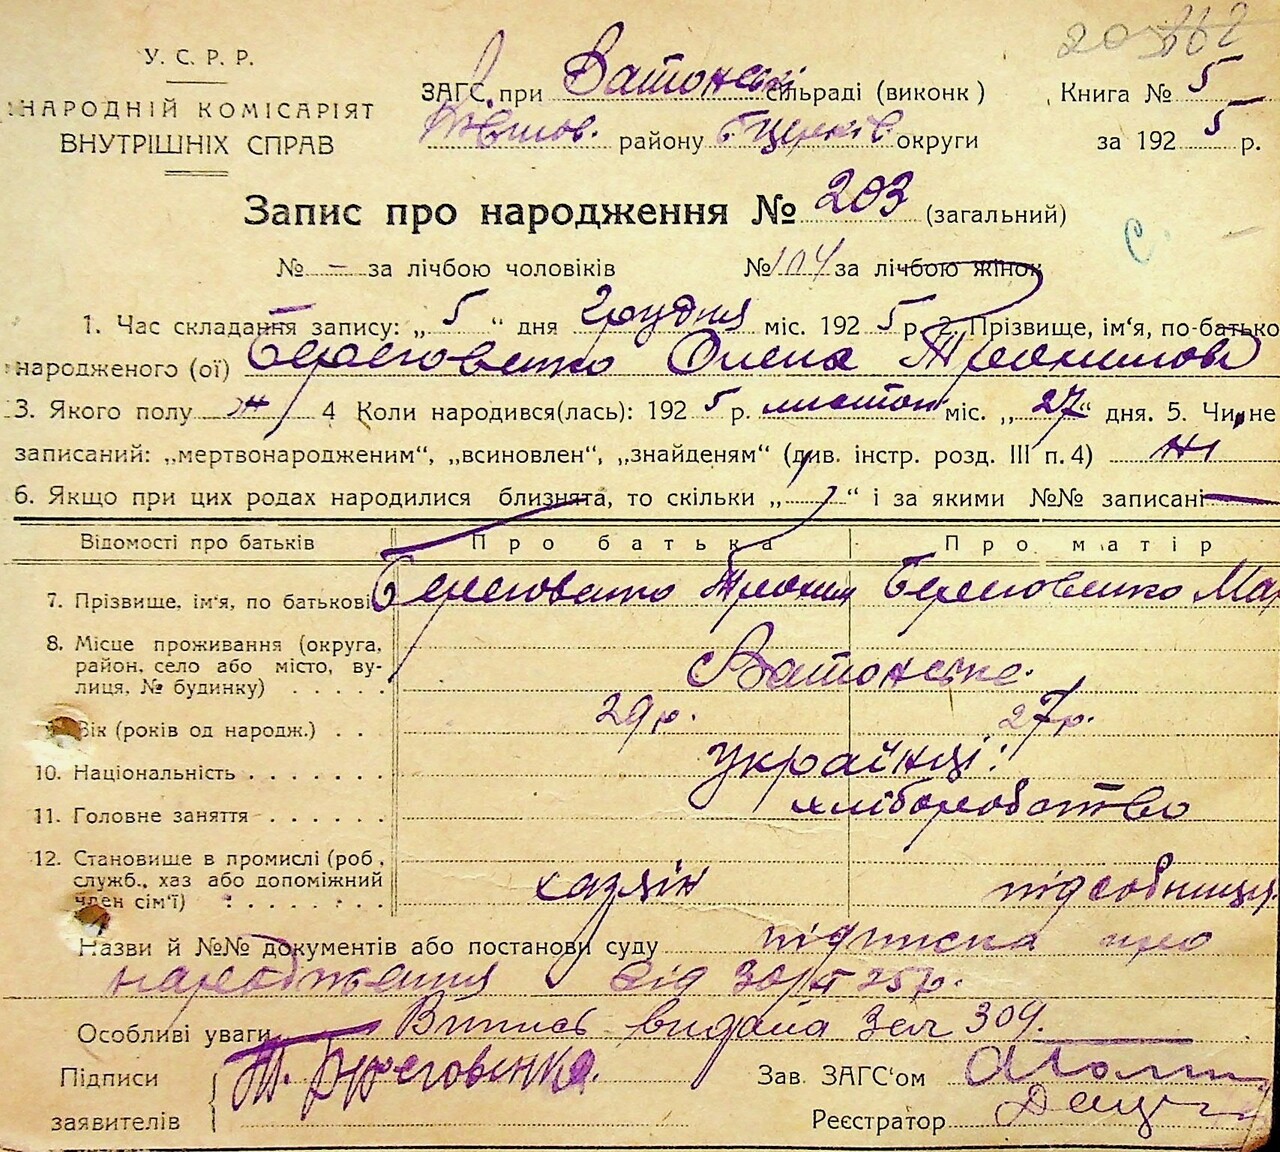 20 362
У. С. Р. Р.
НАРОДНІЙ КОМІСАРІЯТ
ВНУТРІШНІХ СПРАВ
ЗАГС при Ватонські сільраді (виконк )
району Бцерків округи
Книга № 5
за 1925 р.
Запис про народження № 203 (загальний)
№ – за лічбою чоловіків № 104 за лічбою жінок
1. Час складання запису: „ 5 “ дня Грудня міс. 1925 р. 2. Прізвище, ім‘я, по-батько
народженого (ої) Береговенко Олена Трохимові
3. Якого полу ж 4 Коли народився(лась): 1925 р. листоп міс. „ 27 “ дня. 5. Чи не
записаний: „мертвонародженим“, „всиновлен“, „знайденям“ (див. інстр. розд. III п. 4) Ні
6. Якщо при цих родах народилися близнята, то скільки „ “ і за якими №№ записані —
Відомості про батьків Про батька Про матір
7. Прізвище, ім‘я, по батькові Береговенко Трохим Береговенко Мар
8. Місце проживання (округа,
район, село або місто, ву-
лиця, № будинку) . . . . . Ватонське.
Вік (років од народж.) . . 29 р. 27 р.
10. Національність . . . . . . . Українці
11. Головне заняття . . . . . . хліборобство
12. Становище в промислі (роб.,
служб., хаз або допоміжний
член сім‘ї) : . . . . . . . хазяїн підсобниця
Назви й №№ документів або постанови суду підписка про
народження від 30/XI 25 р.
Особливі уваги Витись видана зал 309.
Підписи
заявителів
Т. Береговенко.
Зав. ЗАГС‘ом
Реєстратор